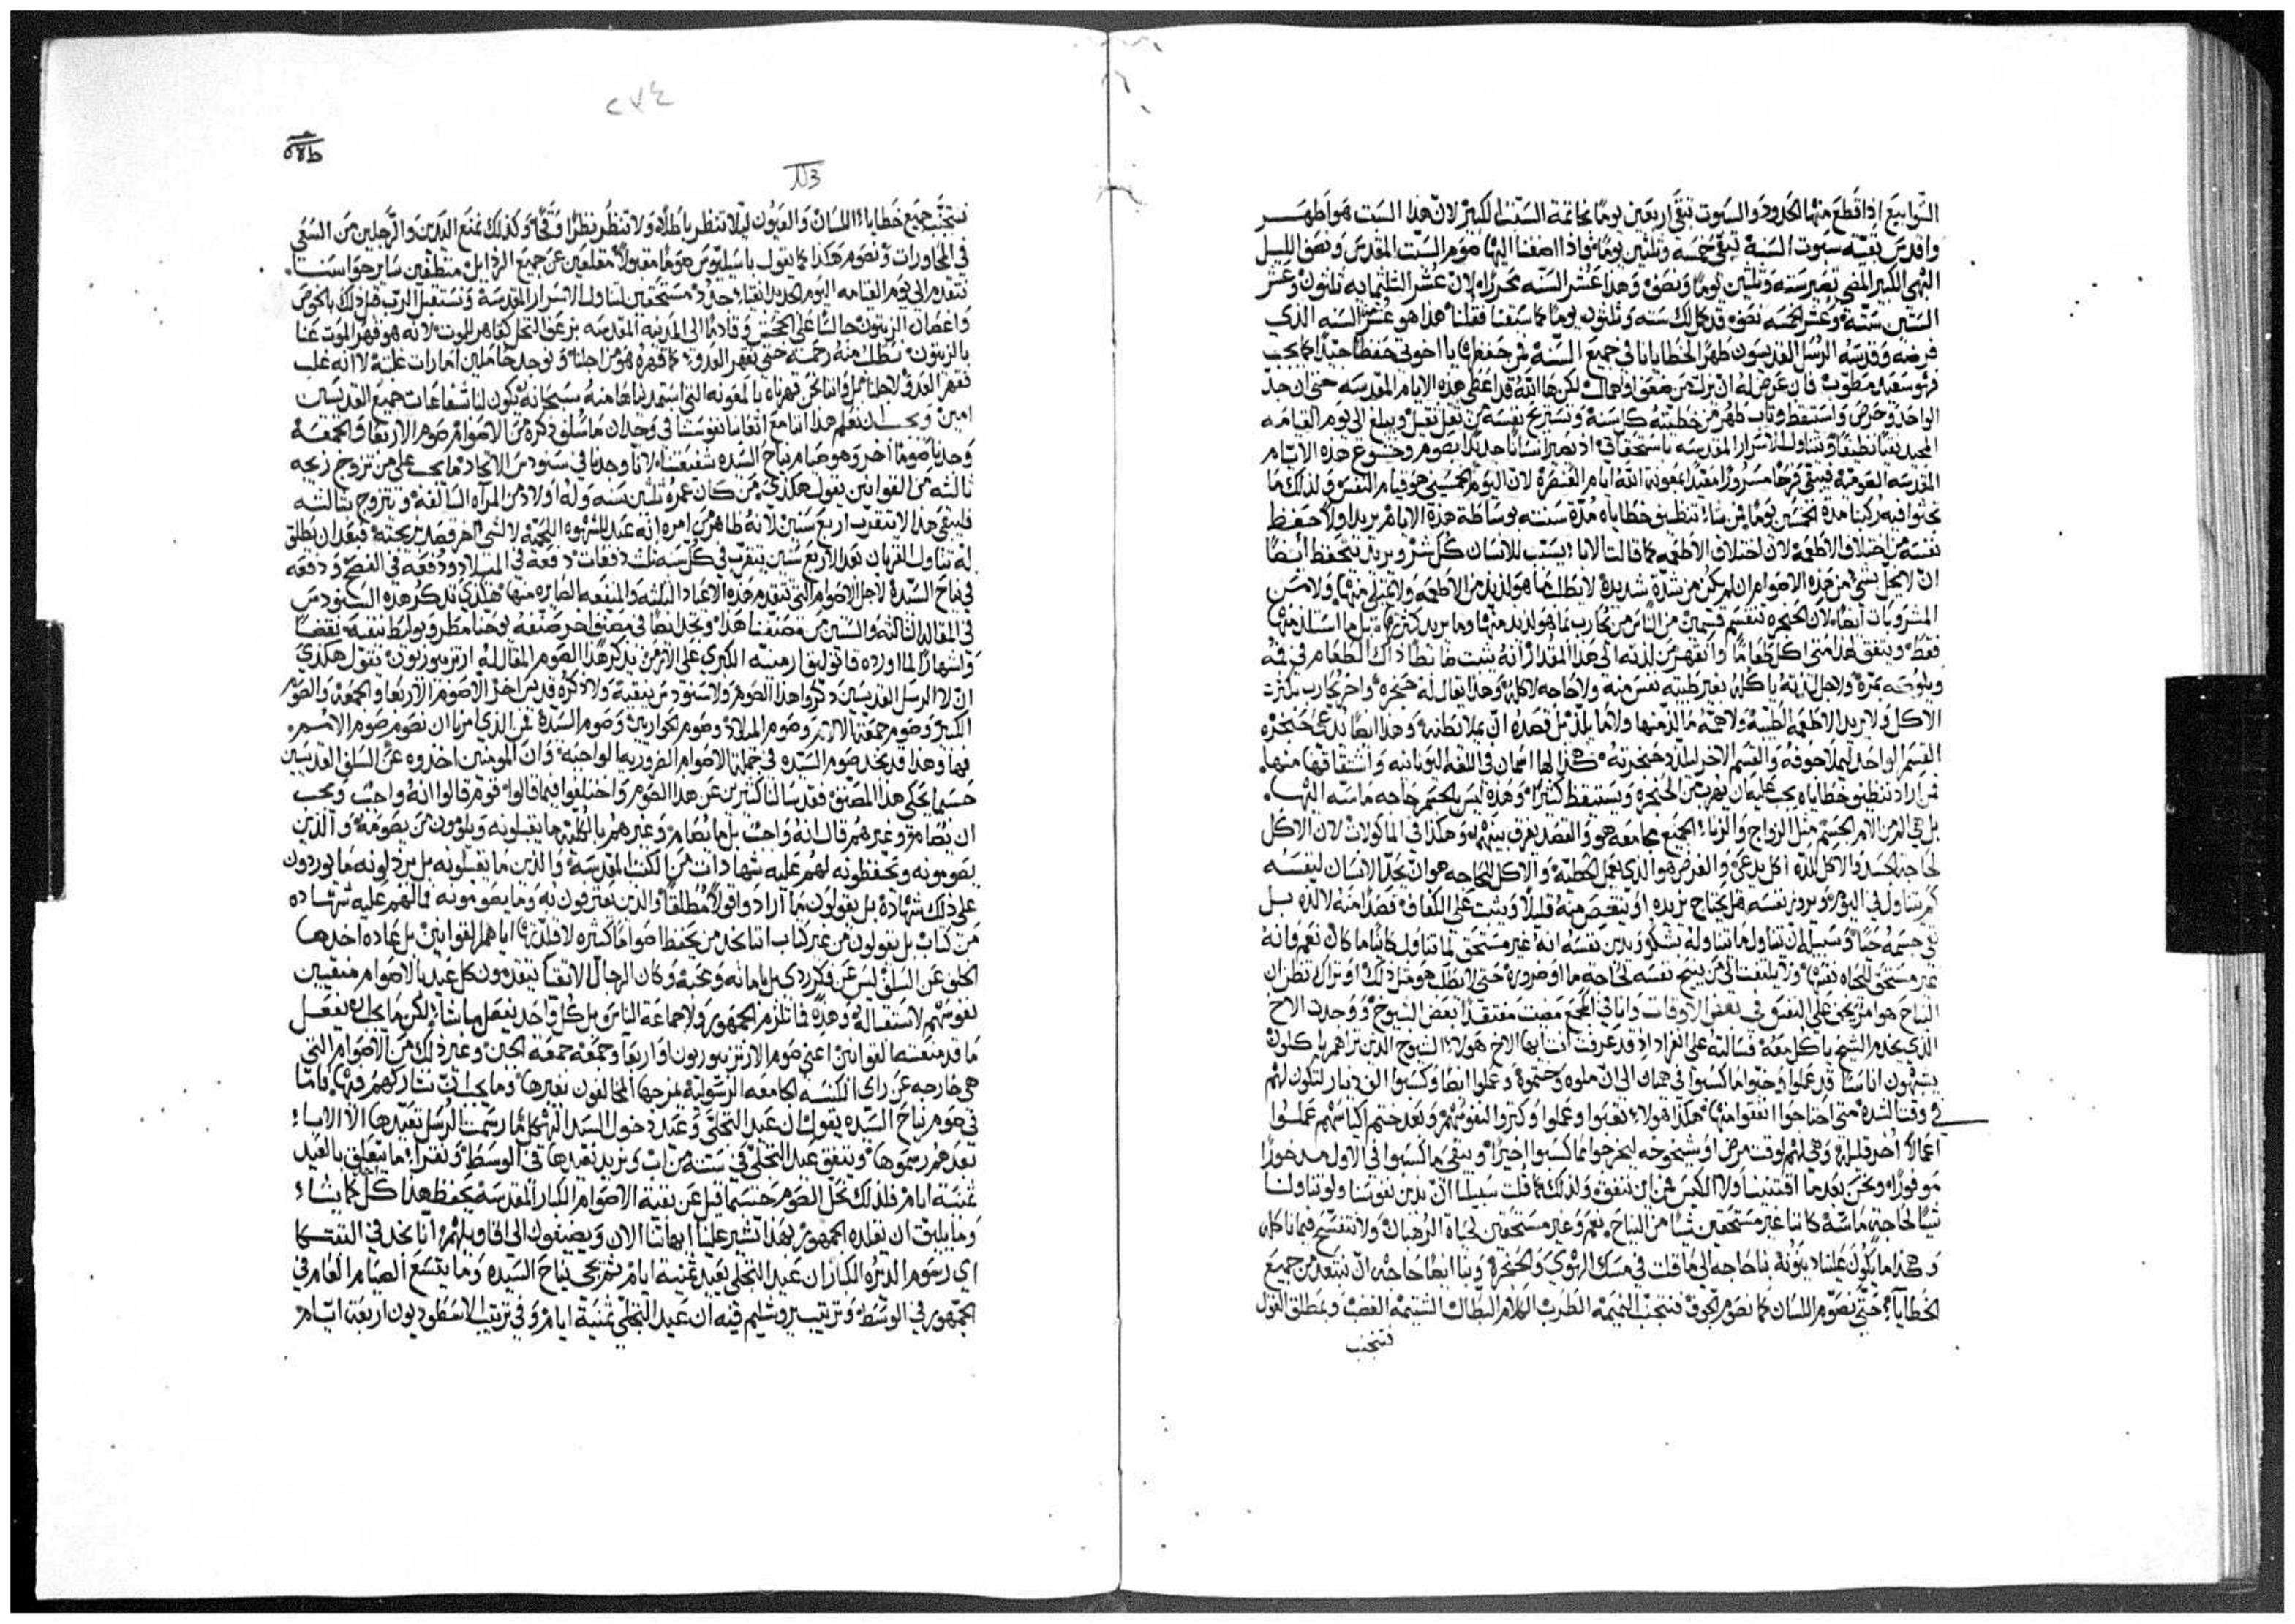 السوابيع اذا قطع منها الحدود والسبوت تبقى اربعين يومًا بخاتمة السبت الكبير لان هذا السبت هو اطهر
واقدس بقية سبوت السنة تبقى خمسة وثلثين يومًا فاذا اضفنا اليها صوم السبت المقدس ونصف الليل
البهي الكبير المضي تصير ستة وثلثين يومًا ونصف وهذا عشر السنه محررًا لان عشر الثلثمايه ثلثون وعشر
الستين ستة وعشر الخمسه نصف قد كمل لك سته وثلثون يومًا كما سبقنا فقلنا هذا هو عشر السنه الذي
فرضه وقدسه الرسل القديسون طهرًا لخطايانا في جميع السنة فمن حفظه يا اخوتي حفظًا جيدًا كما يجب
فهو سعيد مطوب فان عرض له ان يزل من ضعف او اهمال لكن هاالله قد اعطى هذه الايام المقدسه حتى ان جد
الواحد وحرص واستيقظ وتاب طهر من خطيته كل سنة وتستريح نفسه من ثقل ثقيل ويبلغ الى يوم القيامه
المجيد نقيًا نظيفًا ويتناول الاسرار المقدسه باستحقاق اذ يصير انسانًا جديدًا بصوم وخشوع هذه الايام
المقدسه القومة فيبقى فرحًا مسرورًا معيدًا بمعونة الله ايام العنصرة لان اليوم الخمسيني هو قيام النفس ولذلك ما
نحثوا فيه ركبنا مدة الخمسين يومًا فمن شاء تنظيف خطاياه مدة سنته بوساطة هذة الايام يريد اولًا حفظ
نفسه من اختلاف الاطعمة لان اختلاف الاطعمه كما قالت الابا يسبب للانسان كل شر ويريد يتحفظ ايضًا
ان لا يحل بشي من هذه الاصوام ان لم يكن من شدة شديدة لا بطلب ما هو لذيذ من الاطعمه ولا تمتلي منها ولا من
المشروبات ايضًا لان الحنجره تنقسم قسمين من الناس من يحارب بما هو لذيذ منها وما يريد كثيرها بل ما استلذ منها
فقط ويتفق هذا متى اكل طعامًا وانقهر من لذته الى هذا المقدار انه يثبت ماضغًا ذاك الطعام في فمه
ويلوكه مرة ولاجل لذته ياكله بغير طيبة نفس منه ولا حاجه لاكله وهذا يقال له حنجره واخر يحارب بكثرت
الاكل ولا يريد الاطعمه الطيبة ولا همّه ما الذ منها ولا ما يلذ بل قصده ان يملا بطنه وهذا ايضًا يدعى حنجره
القسم الواحد ليملا جوفه والقسم الاخر ليلذ حنجرته هكذا لها اسمان في اللغه اليونانيه واشتقاقها منها
فمن اراد تنظيف خطاياه يجب عليه ان يهرب من الحنجره ويستيقظ كثيرًا وهذه ليس بالجسم حاجه ماسه اليها
بل هي المرض الجسيم مثل الزواج والزناء الجميع مجامعه هو والقصد يفرق بينهم وهكذا في الماكولات لان الاكل
لحاجة الجسد والاكل للذه اكل يدعى والغرض هو الذي يعمل الخطية والاكل للحاجه هو ان يحدّ الانسان لنفسه
كم يتناول في اليوم ويروز نفسه هل يحتاج يزيده او ينقص منه قليلًا ويثبت على الكفاف قصدًا منه لا لذه بل
تقي جسمه حيًا وسبيله ان يتناول ما يتناوله بشكر ويدين نفسه انه غير مستحق لما تناول كاينًا ما كان نعم وانه
غير مستحق للحاه نفسها ولا يلتفت الى من ينيح نفسه لحاجة ما او ضرورة حتى لا يطلب هو مثل ذلك او تراك تظن ان
النياح هو امر يجئ على النفس في بعض الاوقات وانا في المجمع مضيت مفتقدًا بعض الشيوخ ووجدت الاخ
الذي يخدم الشيخ ياكل معه فسالته على انفراد اذ قد عرفت انت ايها الاخ هولاء الشيوخ الذين تراهم ياكلون
يشبهون اناسًا قد عملوا وخبوا ما كسبوا في هميان الى ان ملوه وختموه وعملوا ايضًا وكسبوا الف دينار لتكون لهم
في وقت الشده متى احتاجوا انفقوا منها هكذا هولاء تعبوا وعملوا وكنزوا لنفوسهم وبعد ختم اكياسهم عملوا
اعمالًا اخر قليلة وهي لهم لوقت مرض او شيخوخه ليخرجوا مما كسبوا اخيرًا ويبقى ما كسبوا في الاول مذخورًا
موفورًا ونحن بعد ما اقتنينا ولا الكيس فمن اين ننفق ولذلك كما قلت سبيلنا ان ندين نفوسنا ولو تناولنا
شيًا لحاجة ماسّة كاننا غير مستحقين شيًا من النياح نعم وغير مستحقين لحياة الرهبان ولا نتفسح فيما ناكل
وهكذا ما يكون علينا دينونة بنا حاجه الى ما قلت في مسك الهوي والحنجرة وبنا ايضًا حاجه ان نبتعد من جميع
الخطايا حتى نصوّم اللسان كما نصوّم الجوف فنتجنب النميمة الطرب الكلام البطال الشتيمه الغضب وبمطلق القول
نتجنب
٢٧٤
نتجنب جميع خطاياء اللسان والعيون ليلا تنظر باطلًا ولا تنظر نظرًا وقحًا وكذلك نمنع اليدين والرجلين من السعي
في المحاورات ونصوم هكذا كما يقول باسيليوس صومًا مقبولًا مقلعين عن جميع الرذايل منظفين ساير حواسنا
نتقدم الى يوم القيامه اليوم الجديد انقياء جدد مستحقين لتناول الاسرار المقدسة ونستقبل الرب قبل ذلك بالخوص
واغصان الزيتون جالسًا على الجحش وقادمًا الى المدينه المقدسه بزعف النخل كقاهر للموت لانه هو قهر الموت عنا
بالزيتون نطلب منه رحمته حتى يقهر العدو كما قهره هو من اجلنا ونوجد حاملين امارات غلبته لا انه غلب
فقهر العدو لاجلنا بل واننا نحن قهرناه بالمعونه التي استمديناها منه سبحانه تكون لنا شفاعات جميع القديسين
امين ويجب ان نعلم هذا اننا مع اتعابنا نفوسنا في وجدان ما سلف ذكره من الاصوام صوم الاربعا والجمعة
وجدنا صومًا اخر وهو صيام نياح السيده شفيعتنا لاننا وجدنا في سنودس الاتحاد ما يجب على من تزوج زيجه
ثالثه من القوانين يقول هكذي من كان عمره ثلثين سنه وله اولاد من المرآه السالفة وتزوج بثالثه
فلينقى هذا لا يتقرب اربع سنين لانه ظاهر من امره انه عبد للشهوه اللحميّة لا لشي اخر قصد زيجته فبعد ان يطلق
له تناول القربان بعد الاربع سنين يتقرب في كل سنه ثلث دفعات دفعة في الميلاد ودفعه في الفصح ودفعه
في نياح السيدة لاجل الاصوام التي تتقدم هذه الاعياد الثلثه والمنفعه الصايره منها هكذي تذكر هذه السنودس
في المقاله الثالثه والستين من مصنفنا هذا ونجد ايضًا في مصنف اخر صنفه يوحنا مطروبوليط نيقيه نقضًا
واشهارًا لما اورده قاثوليق ارمينيه الكبرى على الارمن يذكر هذا الصوم المقال له ارتزيبورتون يقول هكذي
ان لا الرسل القديسين ذكروا هذا الصوم ولا سنودس نيقية ولا ذكره قديس اخر الا صوم الاربعا والجمعة والصوم
الكبير وصوم جمعة الالام وصوم الميلاد وصوم الحواريين وصوم السيدة فمن الذي امرنا ان نصوم صوم الاثم
فها وهذا قد يحد صوم السيده في جملة الاصوام الضروريه الواجبة وان المومنين اخذوه عن السلف القديسين
حسبما يحكي هذا المصنف فقد سالنا كثيرين عن هذا الصوم واختلفوا فيما قالوا قوم قالوا انه واجب ويجب
ان يصام وغيرهم قال انه واجب بل ما يصام وغيرهم بالكلية ما يقبلونه ويلومون من يصومه والذين
يصومونه ويحفظونه لهم عليه شهادات من الكتب المقدسة والذين ما يقبلونه بل يرذلونه ما يوردون
على ذلك شهادة بل يقولون ما ارادوا قولًا مطلقًا والذين يعترفون به وما يصومونه فما لهم عليه شهاده
من كتاب بل يقولون من غير كتاب اننا نجد من يحفظ اصوامًا كثيره لا قلدتها اياهم القوانين بل عاده اخذها
الخلف عن السلف ليس عن فكر ردي بل بامانه ومحبة وكان الرجال الاتقيا يتقدمون كل عيد بالاصوام منقيين
نفوسهم لاستقباله وهذه فما تلزم الجمهور ولا جماعة الناس بل كل واحد يفعل ما يشا لكن ما يجب ان يفعل
ما قد منعته القوانين اعني صوم الارتزيبورتون اواربعا وجمعه جمعة الجبن وغير ذلك من الاصوام التي
هي خارجه عن راي الكنيسه الجامعه الرسوليه يمزجها المخالفون بغيرها وما يجب ان نشاركهم فيها فاما
في صوم نياح السيده يقول ان عيد التجلي وعيد دخول السيد الهيكل ما رسمت الرسل تعيدها الا الاباء
بعدهم رسموها ويتفق عيد التجلي في ستة من اب ونريد نعيدها في الوسط ونقراء ما يتعلق بالعيد
ثمنية ايام فلذلك نحل الصوم حسبما قيل عن بقية الاصوام الكبار المقدسة يحفظ هذا كل كما يشاء
وما يليق ان نقلده الجمهور بهذا تشير علينا ابهاتنا الان ويضيفون الى اقاويلهم اننا نجد في التبيكا
اي رسوم الديره الكبار ان عيد التجلي يعيد ثمنية ايام ثم يجي نياح السيده وما يتسع الصيام العام في
الجمهور في الوسط وترتيب يروشليم فيه ان عيد التجلي ثمنية ايام وفي ترتيب الاسطوديون اربعة ايام